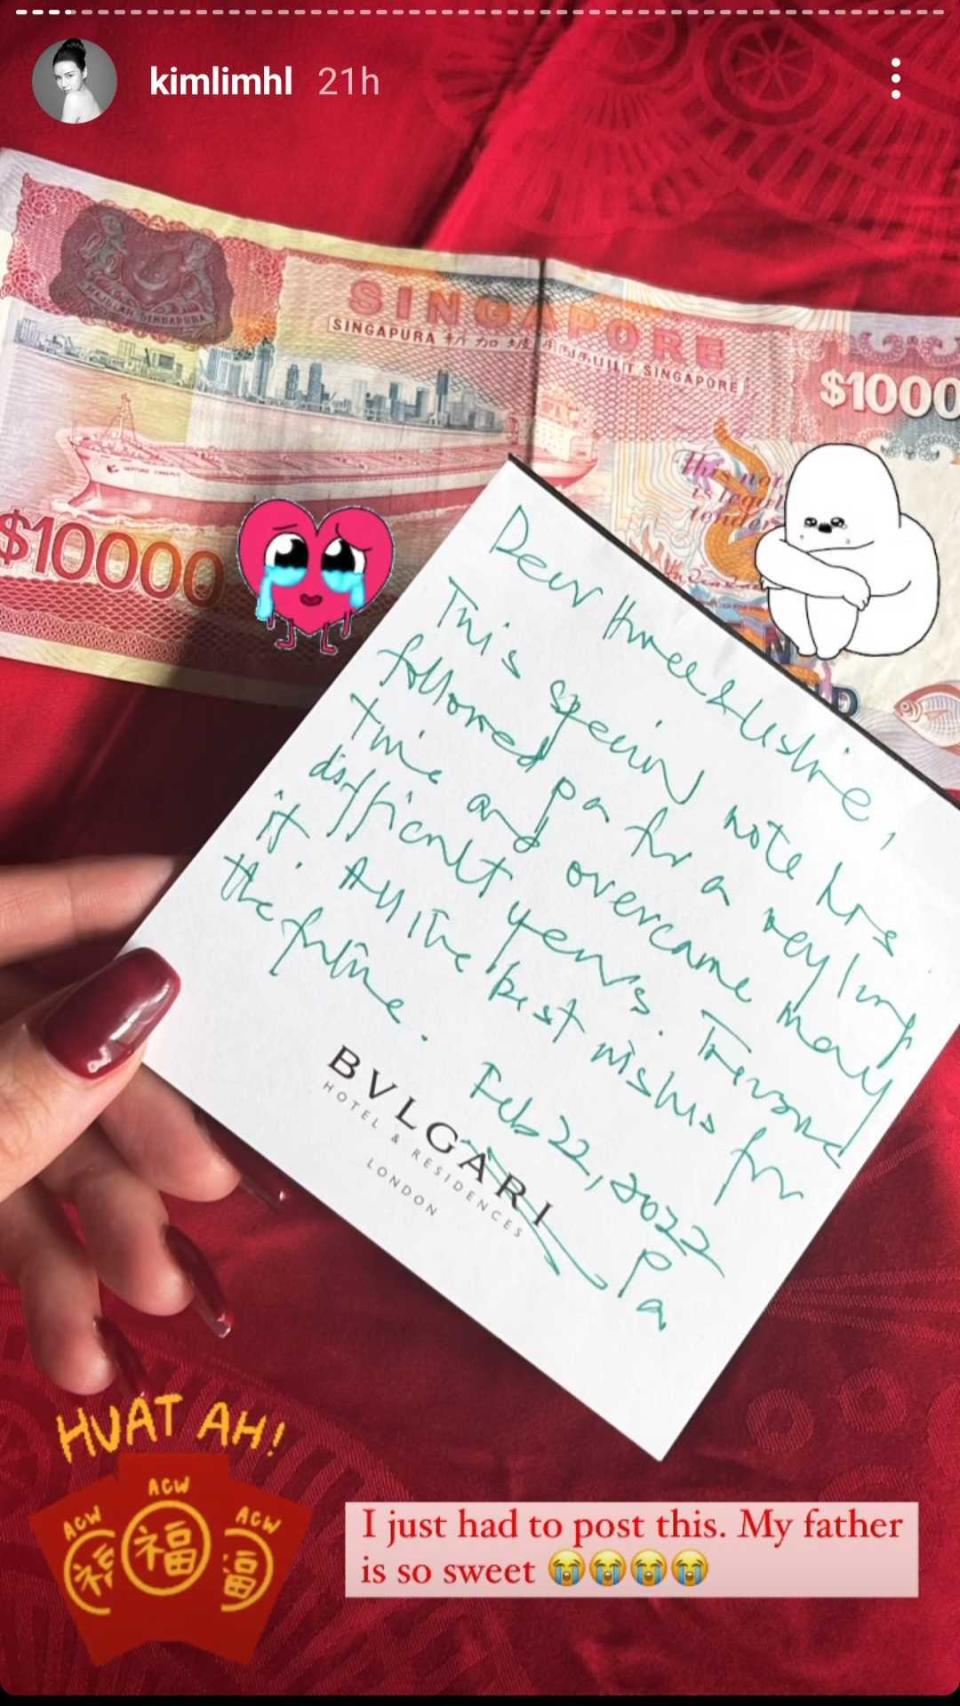 kimlimhl 21h
MAJULAH SINGAPURA
SINGAPORE
SINGAPURA 新加坡 சிங்கப்பூர் SINGAPORE
$1000
This note
is legal
tender
$10000
Dear
This special note has
followed pa for a very long
time and overcame many
difficult years. Treasured
it. All the best wishes for
the future.
Feb 22, 2022
Pa
BVLGARI
HOTEL & RESIDENCES
LONDON
HUAT AH!
ACW
ACW
ACW
福
福
福
I just had to post this. My father
is so sweet 😭😭😭😭